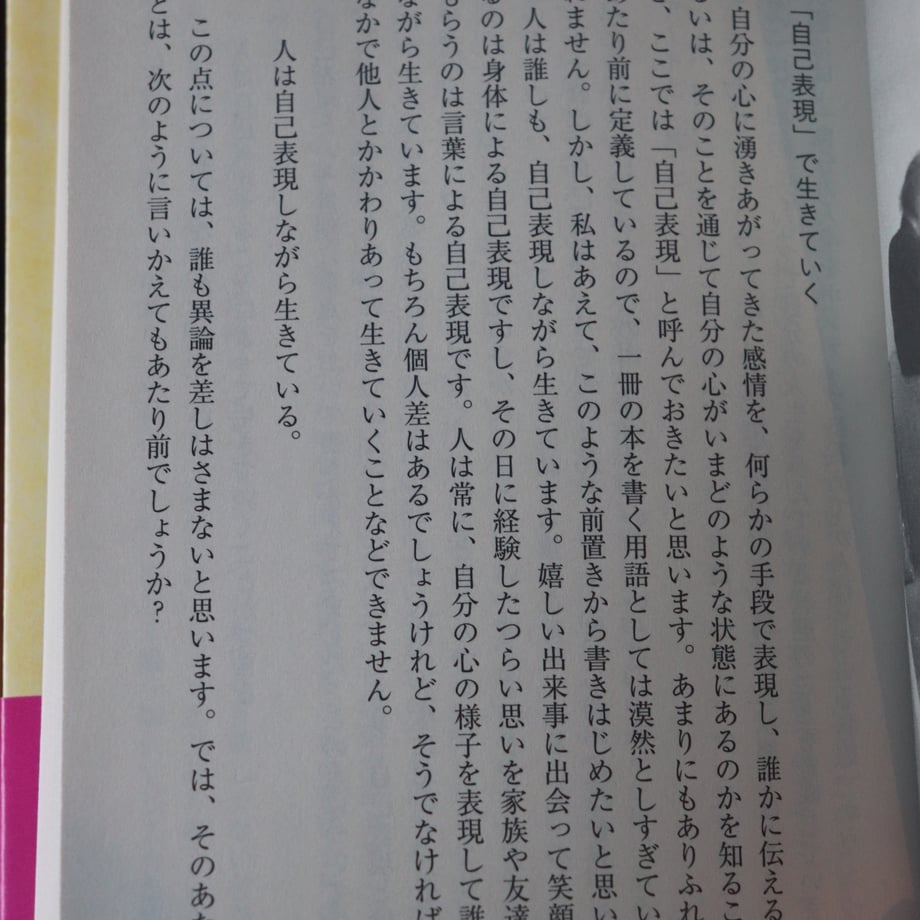 「自己表現」で生きていく
自分の心に湧きあがってきた感情を、何らかの手段で表現し、誰かに伝える
いは、そのことを通じて自分の心がいまどのような状態にあるのかを知るこ
、ここでは「自己表現」と呼んでおきたいと思います。あまりにもありふれ
たり前に定義しているので、一冊の本を書く用語としては漠然としすぎてい
ません。しかし、私はあえて、このような前置きから書きはじめたいと思い
人は誰しも、自己表現しながら生きています。嬉しい出来事に出会って笑顔
るのは身体による自己表現ですし、その日に経験したつらい思いを家族や友達
もらうのは言葉による自己表現です。人は常に、自分の心の様子を表現して誰
ながら生きています。もちろん個人差はあるでしょうけれど、そうでなければ
なかで他人とかかわりあって生きていくことなどできません。
人は自己表現しながら生きている。
この点については、誰も異論を差しはさまないと思います。では、そのあ
とは、次のように言いかえてもあたり前でしょうか？